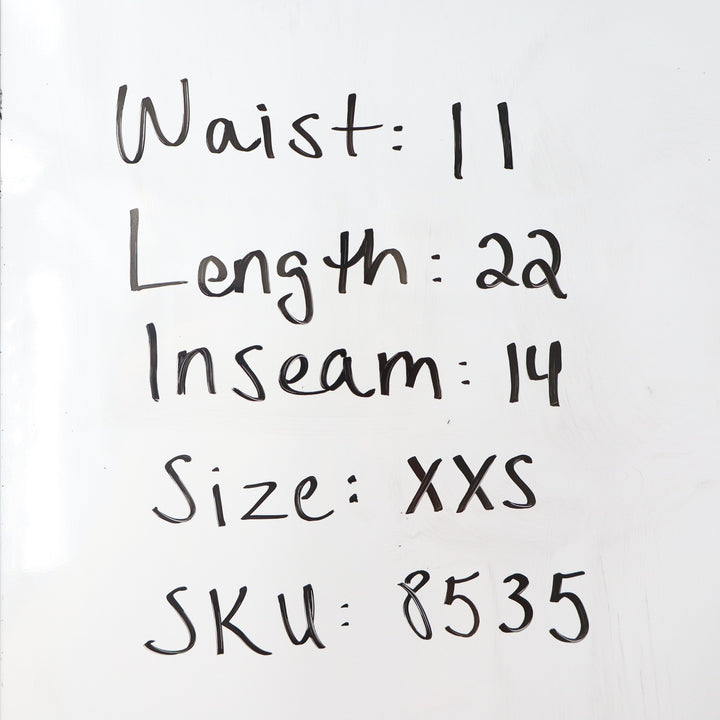 Waist: 11
Length: 22
Inseam: 14
Size: XXS
SKU: 8535